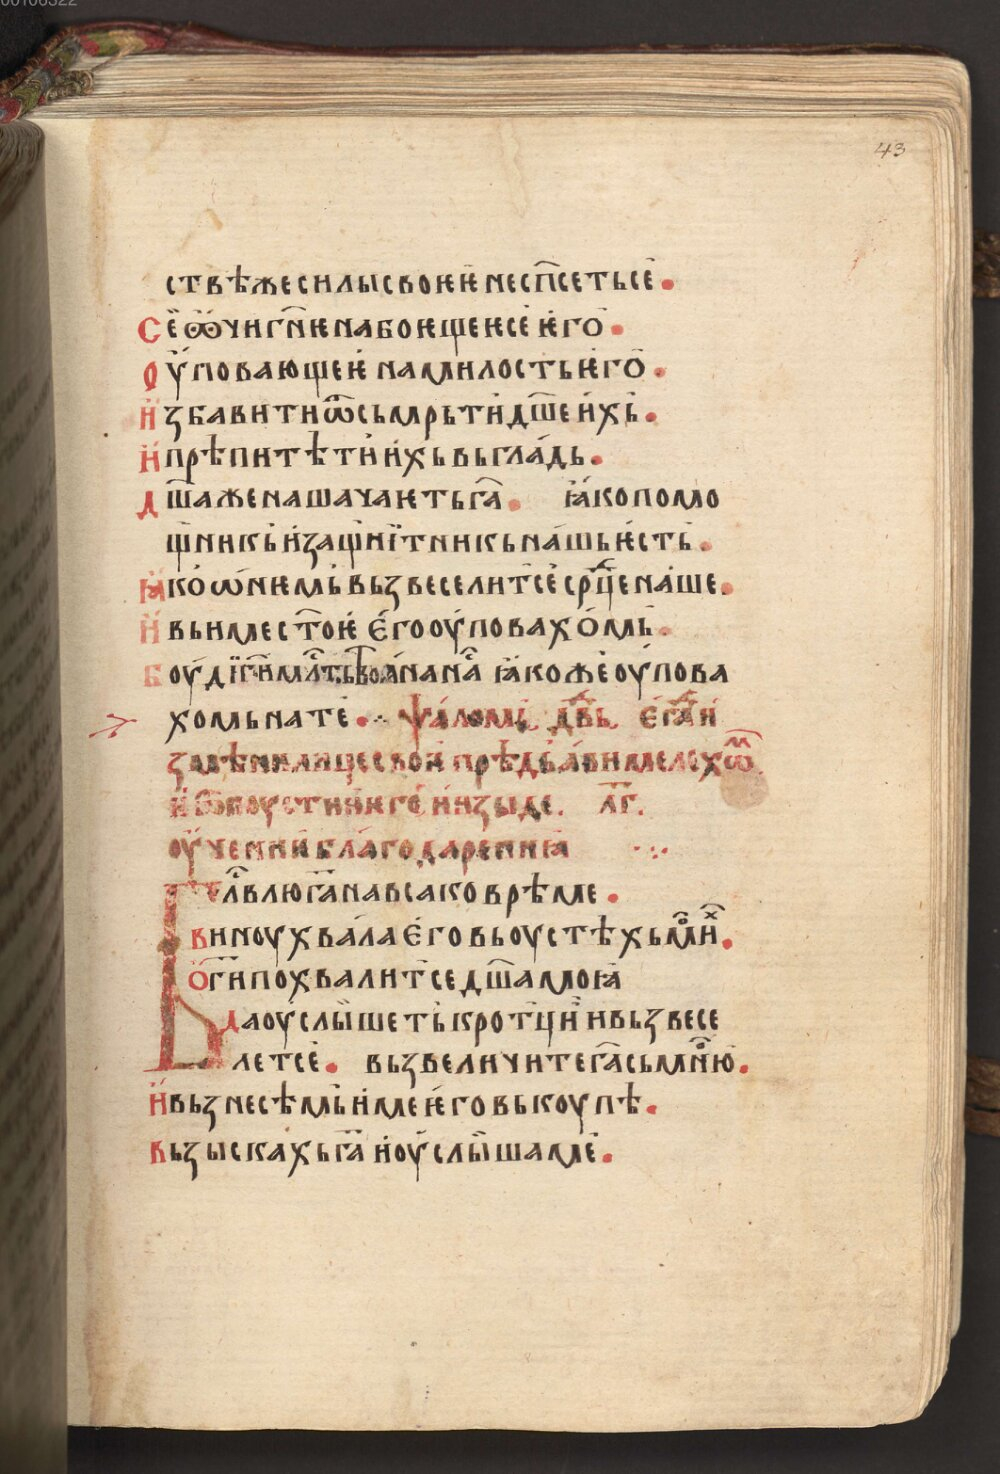 43
ствѣжесилысвоѥѥнеспⷭ҇сетьсе.
Сеѡ҆чигнⷭ҇ѥнабоѥщеѥсеѥго.
Оу҆поваюшеѥ намилостьѥго.
И҆збавитиѿсьмрьтидш҃еи҆хь.
И҆прѣпитѣтии҆хьвьгладь.
Дш҃аженашачаѥтьга҃. ꙗкопомо
щникьи҆защитникьнашьѥсть.
Ꙗкоѡнемьвьзвеселитсесрⷣценаше.
И҆вьиместоѥ егооуповахомь.
Боудиги҃млⷭ҇тьтвоꙗнанⷭ҇а ꙗкожеоупова
хомьнате. ѱаломь двⷣь. егⷣаи
измѣнилицесвоѥ прѣдьавимелехѡⷨ
и҆ѿпоустии҆ѥго и҆изыде. л҃г.
оу҆чениѥблагодарениꙗ
Блⷭ҇влюга҃навсаковрѣме.
виноухвалаеговьоустѣхьмои҆ⷯ.
Оги҃похвалитседш҃амоꙗ
даоуслышетькротции҆ивьзвесе
летсе. вьзвеличитега҃сьмною.
И҆вьзнесѣмьи҆меѥговькоупѣ.
Вьзыскахьга҃ и҆оуслышаме.